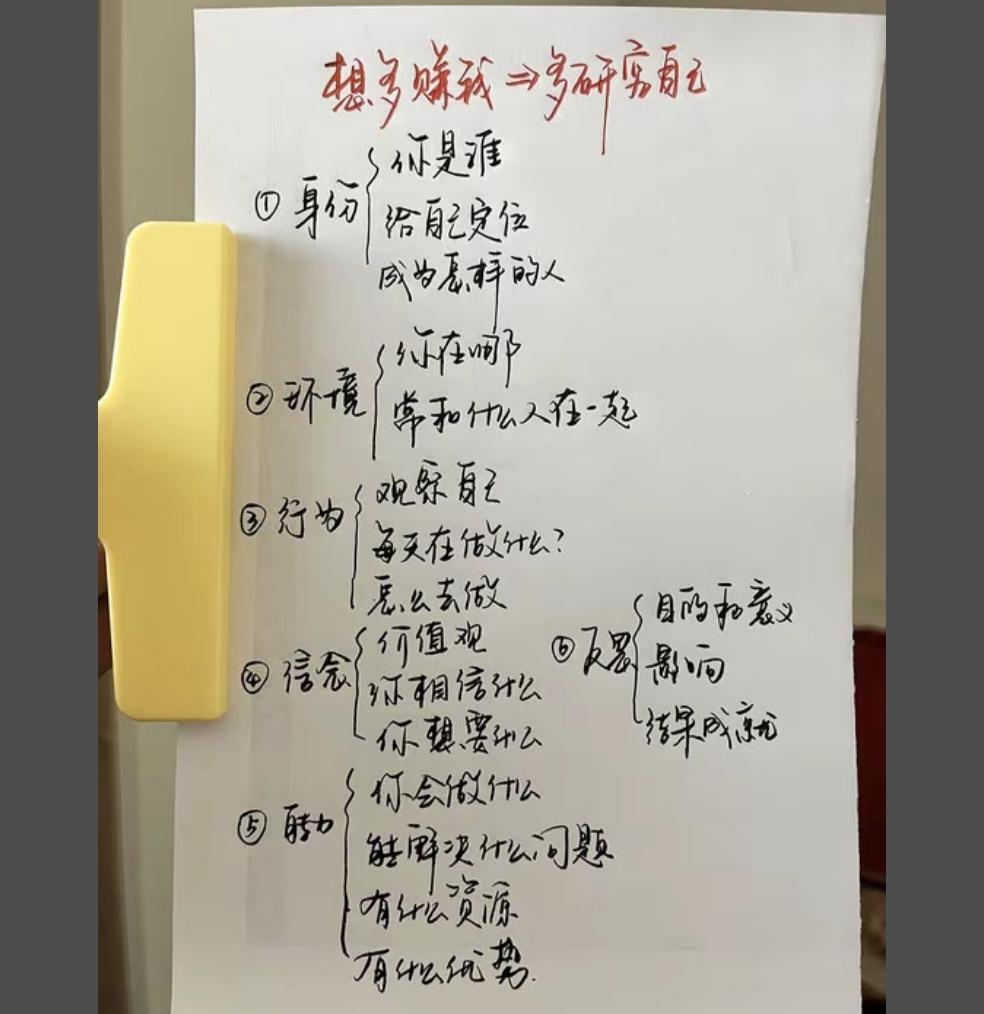 想多赚钱⇒多研究自己
① 身份
你是谁
给自己定位
成为怎样的人
② 环境
你在哪
常和什么人在一起
③ 行为
观察自己
每天在做什么?
怎么去做
④ 信念
价值观
你相信什么
你想要什么
⑤ 能力
你会做什么
能解决什么问题
有什么资源
有什么优势.
⑥ 反
目的和意义
影响
结果成就